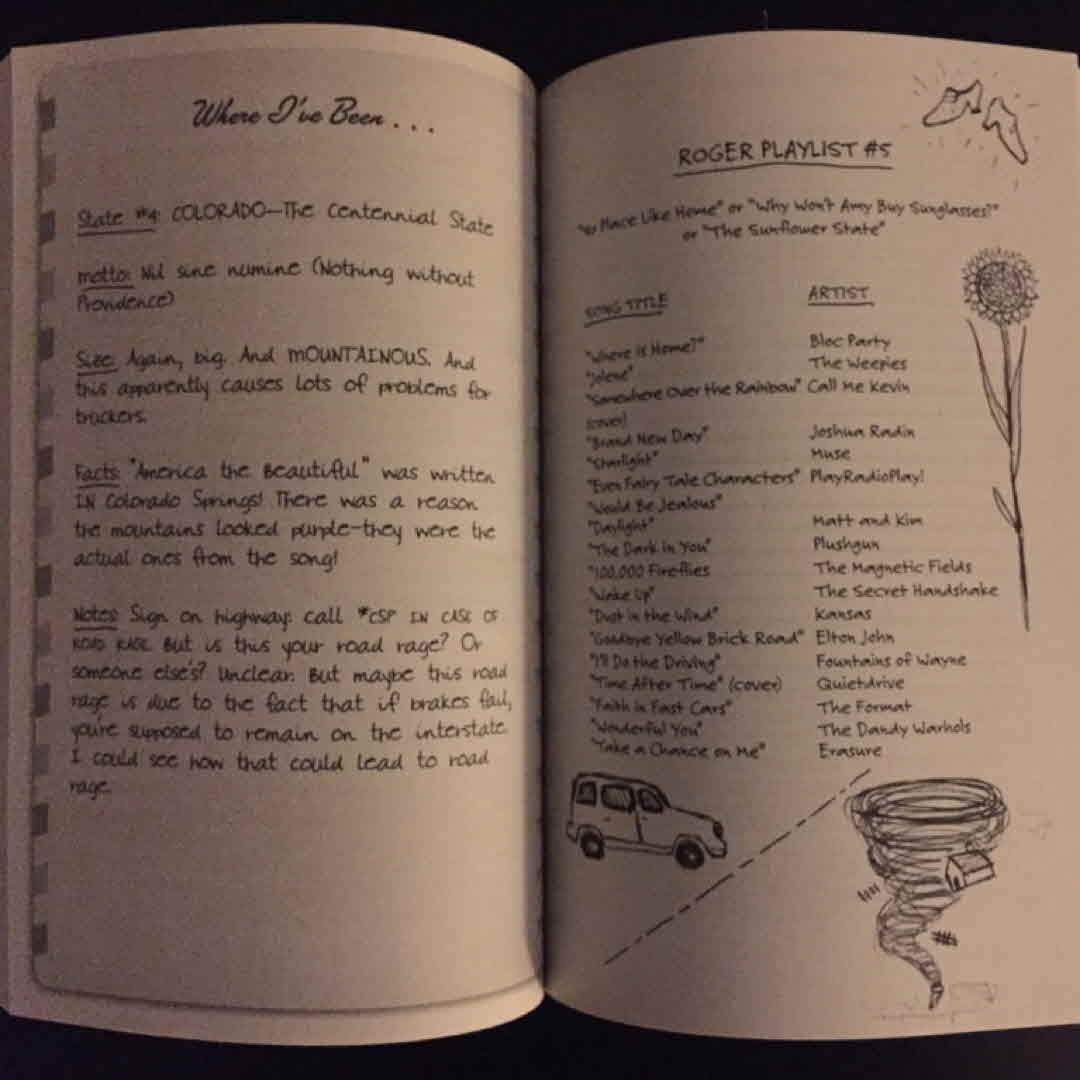 Where I've Been . . .
State #4: COLORADO—The Centennial State
Motto: Nil sine numine (Nothing without
Providence)
Size: Again, big. And MOUNTAINOUS. And
this apparently causes lots of problems for
truckers.
Facts: "America the Beautiful" was written
IN Colorado Springs! There was a reason
the mountains looked purple—they were the
actual ones from the song!
Notes: Sign on highway: call *CSP IN CASE OF
ROAD RAGE. But is this your road rage? Or
someone else's? Unclear. But maybe this road
rage is due to the fact that if brakes fail,
you're supposed to remain on the interstate.
I could see how that could lead to road
rage.
ROGER PLAYLIST #5
"No Place Like Home" or "Why Won't Amy Buy Sunglasses?"
or "The Sunflower State"
SONG TITLE ARTIST
"Where Is Home?" Bloc Party
"Jolene" The Weepies
"Somewhere Over the Rainbow" Call Me Kevin
(cover)
"Brand New Day" Joshua Radin
"Starlight" Muse
"Even Fairy Tale Characters" PlayRadioPlay!
"Would Be Jealous"
"Daylight" Matt and Kim
"The Dark in You" Plushgun
"100,000 Fireflies The Magnetic Fields
"Wake Up" The Secret Handshake
"Dust in the Wind" Kansas
"Goodbye Yellow Brick Road" Elton John
"I'll Do the Driving" Fountains of Wayne
"Time After Time" (cover) Quietdrive
"Faith in Fast Cars" The Format
"Wonderful You" The Dandy Warhols
"Take a Chance on Me" Erasure